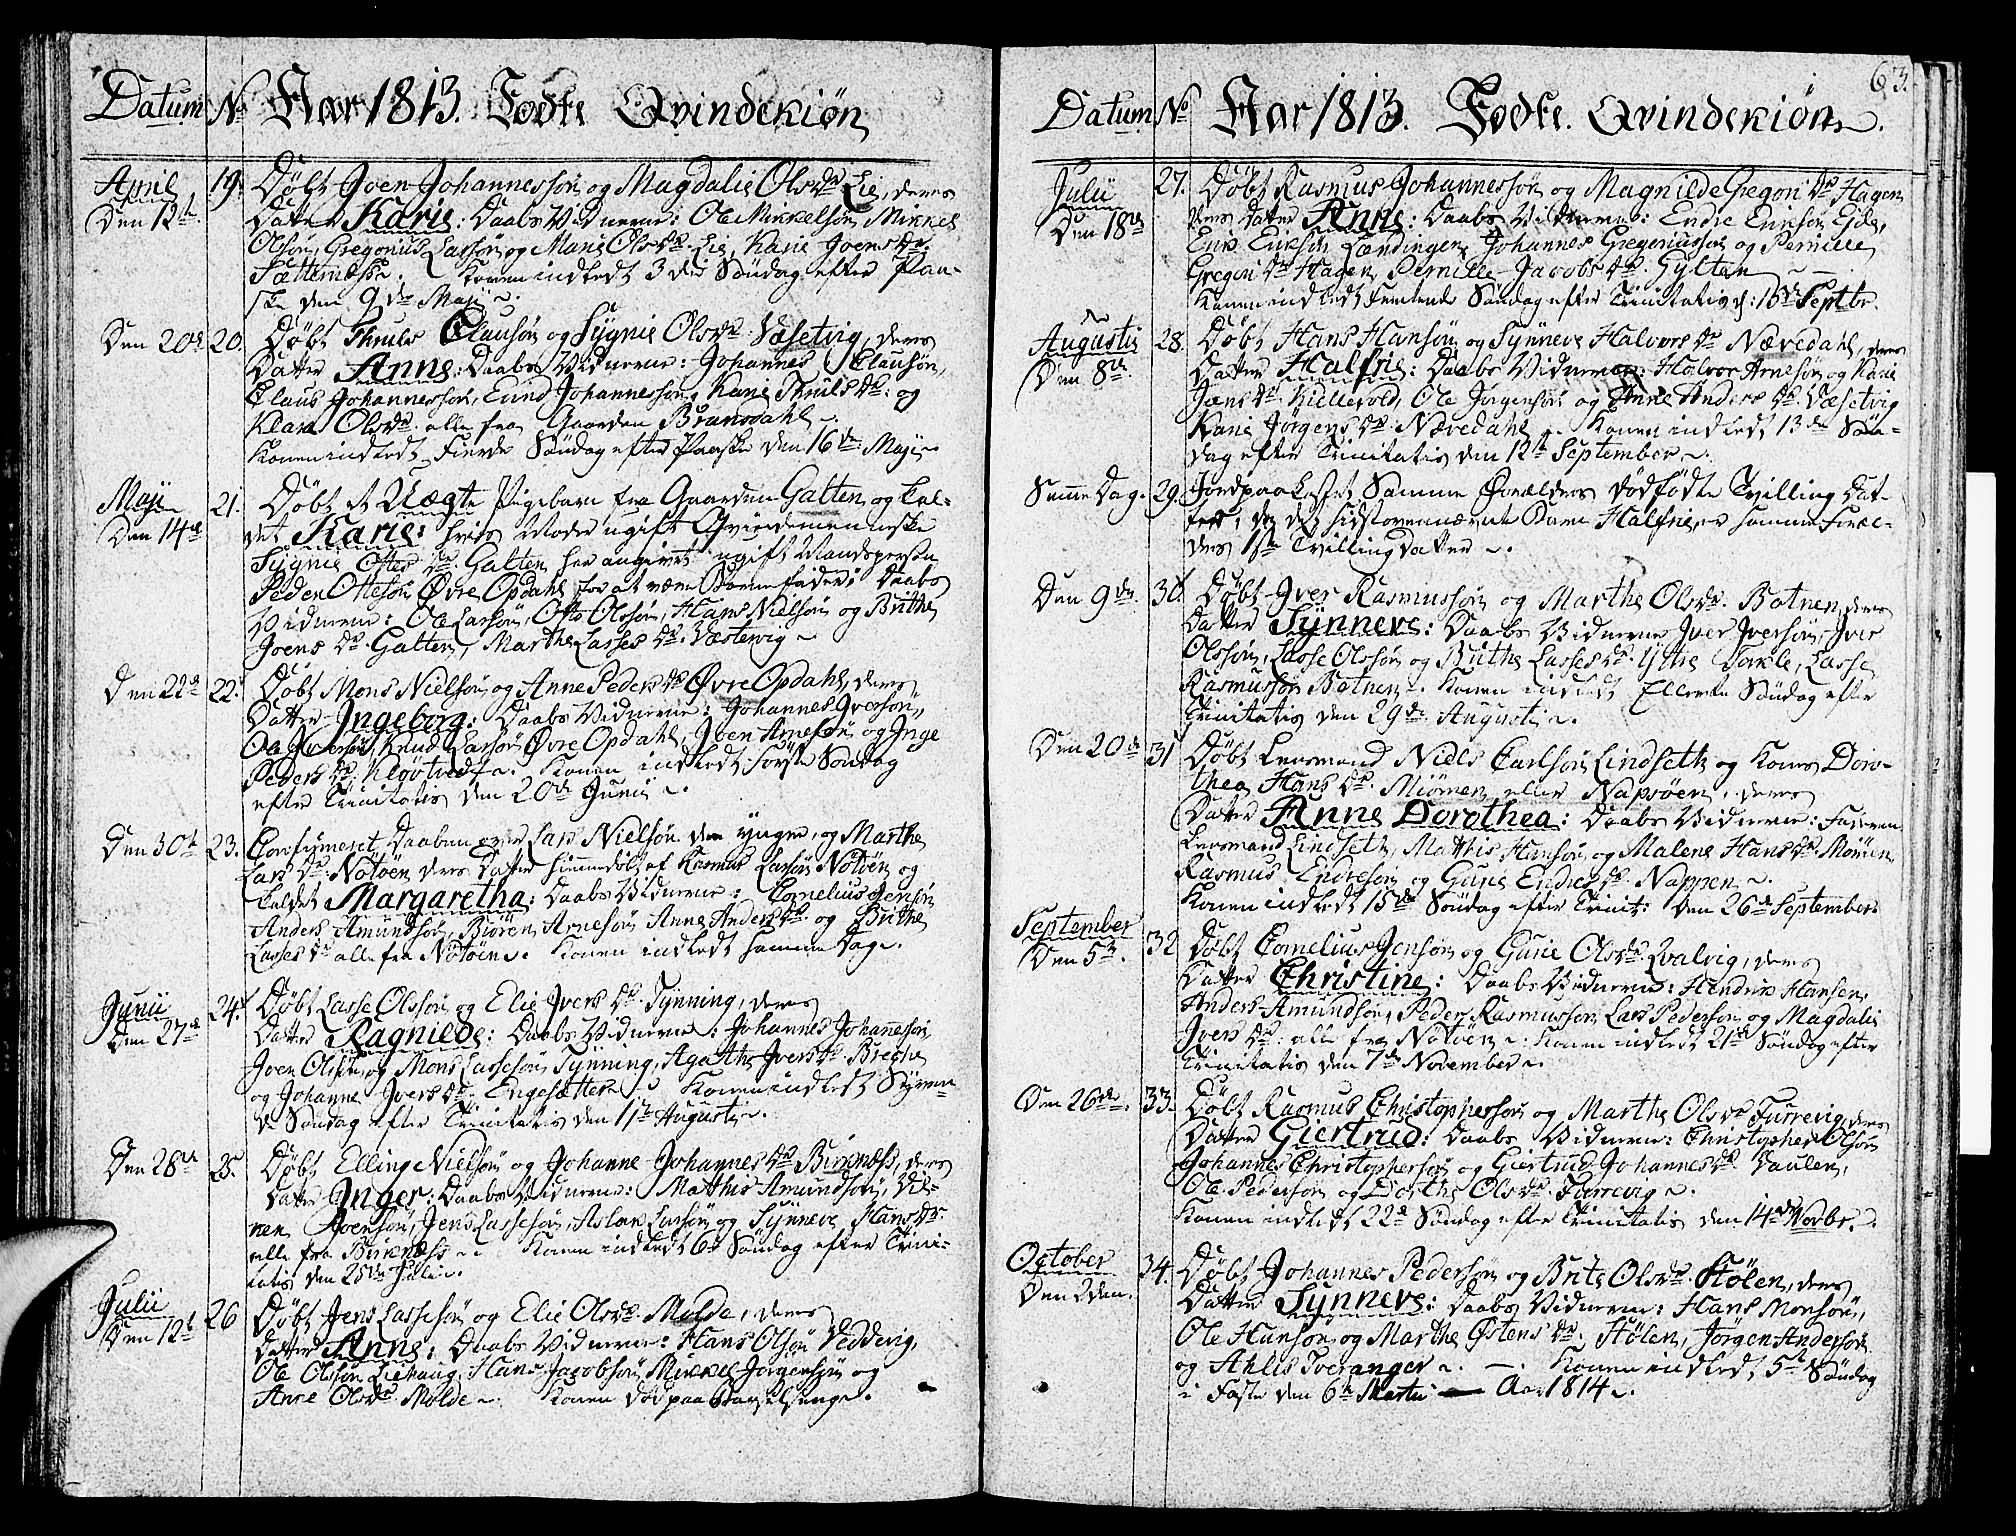 Datum No Aar 1813. Fødte Qvindekiøn
April 19. Døbt Joen Johannessøn og Magdalie Olsdr Lie, deres
Den 12te Datter Karie: Daabs Vidnerne: Ole Mikkelsøn, Mikkel
Olssøn, Gregorius Larssøn og Marie Olsdr Lie, Karie Joensdr
Konen indledt 3die Søndag efter Paa-
ske den 9de Maji.
Den 20de 20. Døbt Thruls Clausøn og Sygnie Olsdr Væsetvig, deres
Datter Anne: Daabs Vidnerne: Johannes Clausøn,
Claus Johannessøn, Eind Johannessøn, Karie Thrulsdr og
Klara Olsdr alle fra Gaarden Bransdahl.
Konen indledt Fierde Søndag efter Paaske den 16de Maji
Maji 21. Døbt et Uægte Pigebarn fra Gaarden Galten og kal-
Den 14de det Karie: hvis Moder ugift Qvindemenneske
Sygnie Ottesdr Galten har angivet ugift Mandsperson
Peder Ottesøn Øvre Opdahl for at være Barnefader: Daabs
Vidnerne: Ole Larssøn, Otto Olssøn, Hans Nielsøn og Brithe
Joensdr Galten, Marthe Lassesdr Væstevig
Den 22de 22. Døbt Mons Nielsøn og Anne Pedersdr Øvre Opdahl, deres
Datter Ingeborg: Daabs Vidnerne: Johannes Iversøn,
Ole Iversøn, Knud Larsøn Øvre Opdahl, Joen Arnesøn og Inge
Pedersdr Kløvtvedt. Konen indledt første Søndag
efter Trinitatis den 20de Junii.
Den 30te 23. Confirmeret Daaben over Lars Nielsøn den yngre, og Marthe
Larsdr Nøtøen deres Datter hjemmedøbt af Rasmus Larsøn Nøtøen og
kaldet Margaretha: Daabs Vidnerne: Cornelius Jensøn
Anders Amundsøn, Biøren Arnesøn Anne Andersdr og Brithe
Lassesdr alle fra Nøtøen. Konen indledt samme Dag.
Junii 24. Døbt Lasse Olssøn og Elie Iversdr Tynning, deres
Den 27de Datter Ragnilde: Daabs Vidnerne: Johannes Johannessøn,
Joen Olssøn og Mons Lassesøn Tynning, Agathe Iversdr Breche
og Johanne Iversdr Engesætter. Konen indledt Syven-
de Søndag efter Trinitatis den 1te Augusti.
Den 28de 25. Døbt Elling Nielsøn og Johanne Johannesdr Birknæss, deres
Datter Inger: Daabs Vidnerne: Matthis Amundsøn,
Joensøn, Jens Lassesøn, Aslak Larsøn og Synneve Hansdr
alle fra Birknæss. Konen indledt 6te Søndag efter Trini-
tatis den 25de Julii.
Julii 26 Døbt Jens Lassesøn og Elie Olsdr Molde, deres
Den 12te Datter Anne: Daabs Vidnerne: Hans Olsøn Veddevig,
Ole Olssøn Liehaug, Hans Jacobsøn, Mikkel Jørgensøn og
Anne Olsdr Molde. Konen død paa Barselseng.
63.
Datum No Aar 1813. Fødte Qvindekiøn.
Julii 27. Døbt Rasmus Johannessøn og Magnilde Gregoridr Hagen
Den 18de deres Datter Anne: Daabs Vidnerne: Endre Eriksøn Eide,
Erik Eriksøn Lændingen, Johannes Gregoriussøn og Pernille
Gregoridr Hagen, Pernille Jacobsdr Gylten
Konen indledt Femtende Søndag efter Trinitatis Septbr.
Augusti 28. Døbt Hans Hansøn og Synneve Halvorsdr Nævedahl, deres
Den 8de. Datter Halfrie: Daabs Vidnerne: Halvor Arnesøn og Karie
Jensdr Kiellevold, Ole Jørgensøn og Anne Andersdr Væsetvig
Karie Jørgensdr Nævedahl. Konen indledt 13de Søn-
dag efter Trinitatis den 12te September.
Samme Dag. 29. Jordpaakastet Samme Forældres dødfødte Tvilling Dat-
ter, da det sidstovennævnte Barn Halfrie, er samme Foræl-
dres 1ste Tvilling Datter.
Den 9de. 30. Døbt Iver Rasmussøn og Marthe Olsdr Botnen, deres
Datter Synneve: Daabs Vidnerne Iver Iversøn, Iver
Olssøn, Lasse Olssøn og Brithe Lassesdr Yttre Torkle, Lasse
Rasmussøn Botnen. Konen indledt Ellevte Søndag efter
Trinitatis den 29de Augusti.
Den 20de 31 Døbt Lensmand Niels Carlsøn Lindseth og Kone Doro-
thea Hansdr Miømen eller Napsøen, deres
Datter Anne Dorothea: Daabs Vidnerne: Faderen
Lensmand Lindseth, Matthis Hansøn, og Malene Hansdr
Rasmus Endresøn og Gurie Endresdr Nappen.
Konen indledt 15de Søndag efter Trinit: Den 26de September
September 32 Døbt Cornelius Jensøn og Gurie Olsdr Qvalvig, deres
Den 5te. Datter Christine: Daabs Vidnerne: Hendrik Hansen,
Anders Amundsøn, Peder Rasmussøn Lars Pedersøn og Magdalie
Iversdr alle fra Nøtøen. Konen indledt 21de Søndag efter
Trinitatis den 7de November.
Den 26de. 33. Døbt Rasmus Christophersøn og Marthe Olsdr Furrevig, deres
Datter Giertrud: Daabs Vidnerne: Christopher Olsøn
Johannes Christophersøn og Giertrud Johannesdr Daulen,
Ole Pedersøn og Dorthe Olsdr Furrevig.
Konen indledt 22de Søndag efter Trinitatis den 14de Novbr.
October 34. Døbt Johannes Pedersøn og Brite Olsdr Stølen, deres
Den 3den. Datter Synneve: Daabs Vidnerne: Hans Monsøn,
Ole Hansøn og Marthe Østensdr Stølen, Jørgen Andersøn
og Ahlis Tveranger. — Konen indledt 5te Søndag
i Faste den 6te Martii — Aar 1814.